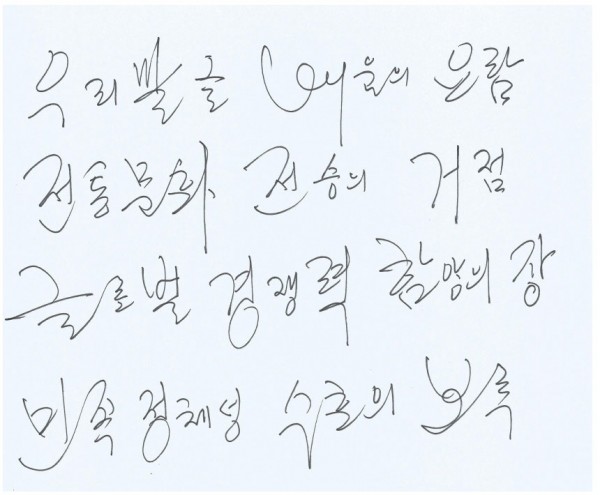 우리말글 배움의 요람
전통문화 전승의 거점
글로벌 경쟁력 함양의 장
민족정체성 수호의 보루